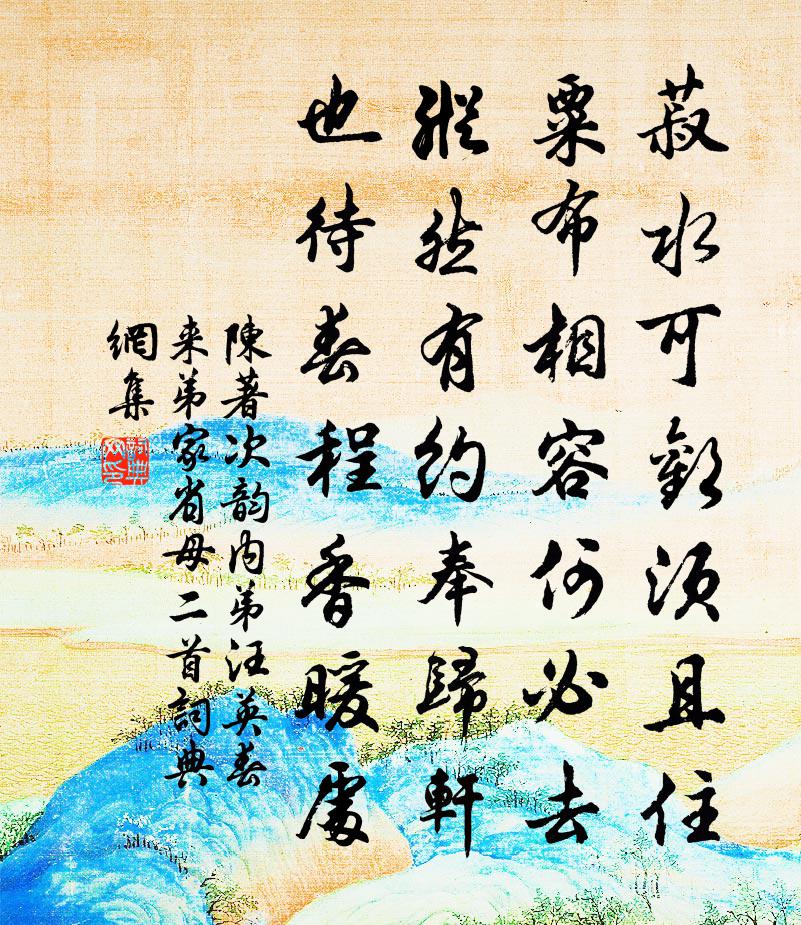 菽水可歡須且住
粟布相容何必去
縱然有約奉歸軒
也待春程香暖處
陳著次韵内弟汪英春
来弟家省母二首詞典
網集